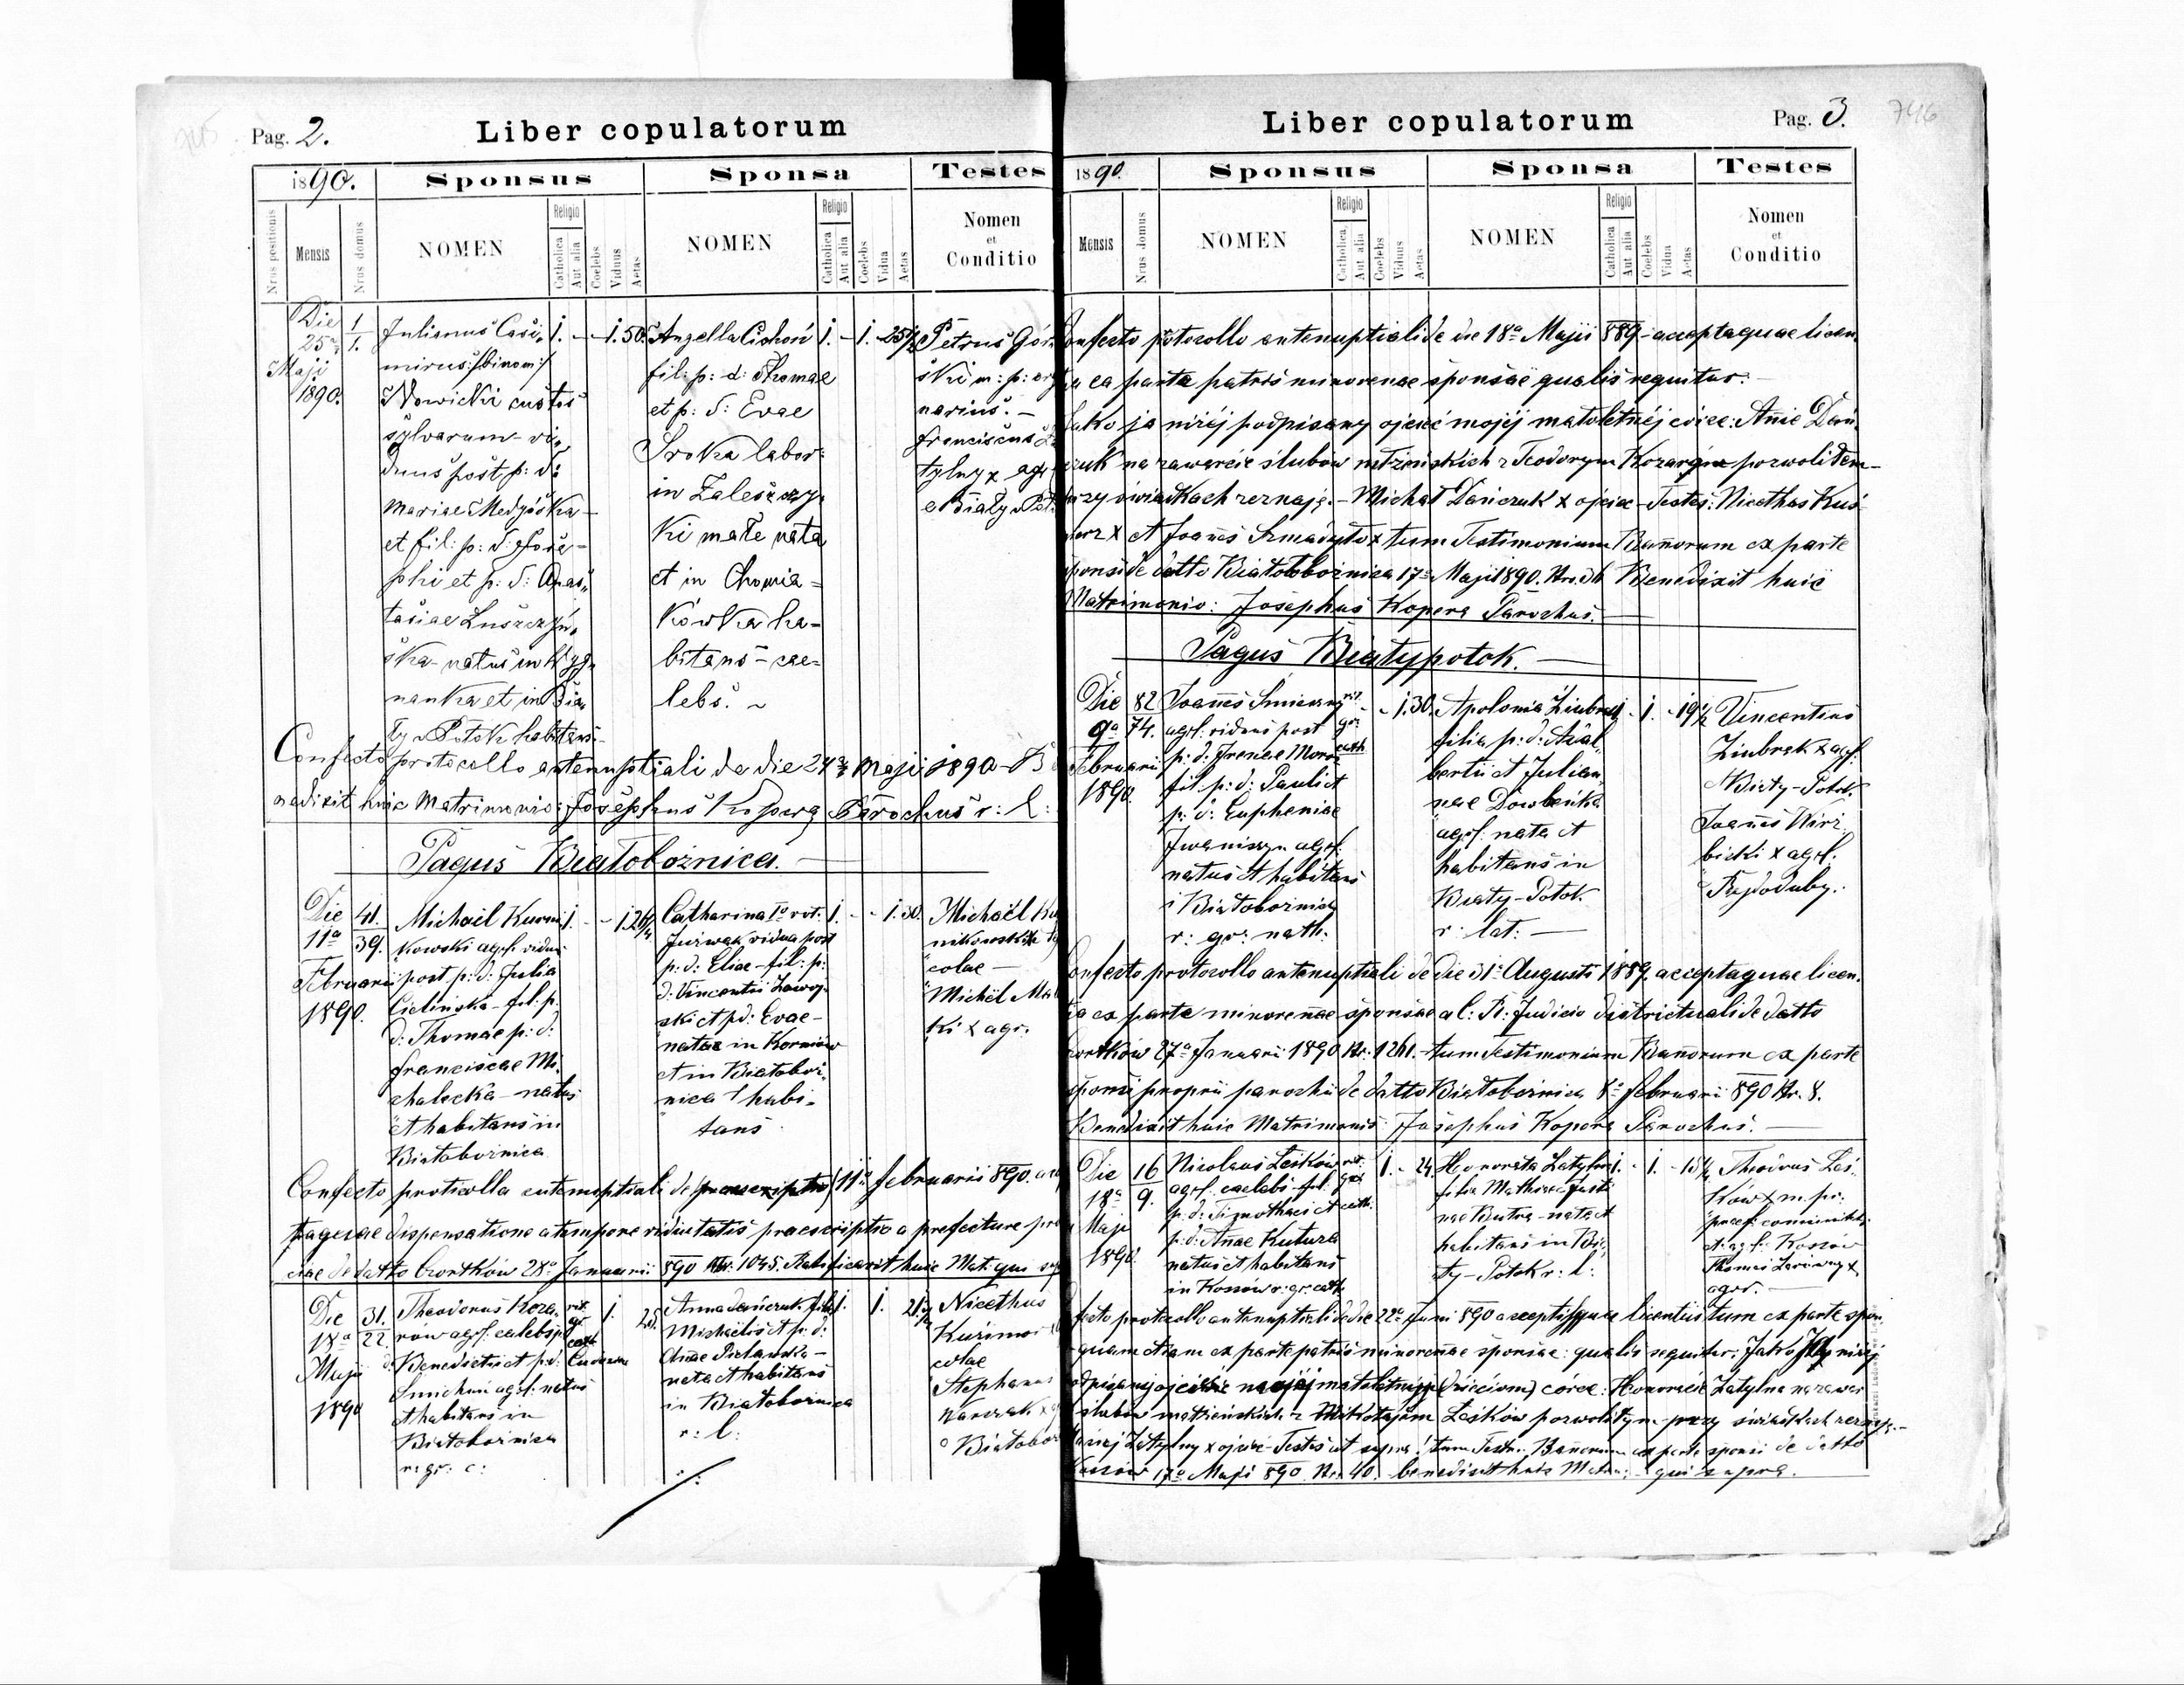 Pag. 2.
Liber copulatorum
1890.
Sponsus
Sponsa
Testes
Nrus positionis
Mensis
Nrus domus
NOMEN
Religio
Catholica
Aut alia
Coelebs
Viduus
Aetas
NOMEN
Religio
Catholica
Aut alia
Coelebs
Vidua
Aetas
Nomen
et
Conditio
Die
25a
Maji
1890.
1
1.
Julianus Casi,
mirus /:binom:/
Nowicki custos
sylvarum - vi,
duus post p: d:
Mariae Medyńska -
et fil: p: d: Jose-
phi et p: d: Anas,
tasiae Łuszczyń,
ska - natus in
nanka et in Bia,
ły Potok habitans -
1. - - 1. 50.
Angella Cichoń
fil: p: d: Thomae
et p: d: Evae
Sroka labor:
in Zaleszczy,
ki małe nata
et in Chomia-
kówka ha-
bitans - cae-
lebs. ~
1. - 1. - 25 1/2
Petrus Gór
ski m: p:
narius. -
Franciscus
tylny x agr
e Biały Pot
Confecto protocollo antenuptiali de die 24a Maji 1890 - Be
nedixit huic Matrimonio: Josephus Kopera Parochus r: l:
Pagus Białobożnica.
Die
11a
Februarii
1890.
41.
39.
Michaël Kurni
kowski agr. viduus
post p: d: Julia
Cielińska - fil: p.
d: Thomae p: d:
Franciscae Mi,
chalecka - natus
et habitans in
Białobożnica
1. - - 1. 26/4
Catharina 1o vot:
Jurwak vidua post
p: d: Eliae - fil: p:
d: Vincentii
ski et p: d: Evae -
natae in
et in Białoboż,
nica habi-
tans
1. - - 1. 30.
Michaël Ku
nikowski
colae -
Michël
ki x agr.
Confecto protocolla antenuptiali de 11a Februarii 890.
dispensatione a tempore viduitatis praescripto a prefecture
ciae de datto Czortków 28a Januarii 890 Nr. 1045. Ratificavit huic Mat: qui sup
Die
18a
Maji
1890
31.
22.
Theodorus Koza,
rów agr. caelebs
Benedicti et p: d:
Smichun agr. natus
et habitans in
Białobożnica
r: gr: c:
1. 25.
Anna Dańczuk filia
Michaëlis et p: d:
Annae
nata et habitans
in Białobożnica
r: l:
1. 1. 21
Nicethus
Kuśmir
colae
Stephanus
e Białobo
Pag. 3.
746
Liber copulatorum
1890.
Sponsus
Sponsa
Testes
Mensis
Nrus domus
NOMEN
Religio
Catholica
Aut alia
Coelebs
Viduus
Aetas
NOMEN
Religio
Catholica
Aut alia
Coelebs
Vidua
Aetas
Nomen
et
Conditio
onfecto protocollo antenuptiali de die 18a Maji 889 - acceptaquae licen,
ex parte patris minorenae sponsae qualis sequitur: -
Jako ja niżej podpisany ojciec mojéj małoletnéj córce: Annie Dań,
czuk na zawarcie ślubów małżeńskich z Teodorym Kozarów pozwoliłem -
przy świadkach zeznaję. - Michał Dańczuk x ojciec - Testes: Nicethas Kuś
x et Joannes x tum Testimonium Bannorum ex parte
sponsi de datto Białobożnica 17a Maji 1890. Benedixit huic
Matrimonio: Josephus Kopera Parochus. -
Pagus Białypotok. -
Die
9a
Februarii
1890.
82
74.
Joannes
agr. viduus post
p: d: Irenae
fil: p: d: Pauli et
p: d: Eupheniae
Iwaniszyn agr.
natus et habitans
i Białobożnica
r: gr: cath:
- - 1. 30.
Apolonia Ziubrak
filia p: d: Adal,
berti et Julian,
nae
agr. nata et
habitans in
Biały-Potok.
r: lat: -
1. - 19 1/2
Vincentius
Ziubrak x agr.
Biały-Potok.
Joannes
bicki x agr.
onfecto protocollo antenuptiali de die 31a Augusti 1889. acceptaquae licen,
ia ex parte minorennae sponsae a C: R: Judicio districtuali de datto
ortków 27a Januarii 1890 Nr. 1261. - tum Testimonium Bannorum ex parte
sponsi proprii parochi de datto Białobożnica 8a Februarii 890 Nr. 8.
Benedixit huic Matrimonio: Josephus Kopera Parochus. -
Die
18a
Maji
1890.
16
9.
Nicolaus Leśków
agr. caelebs fil.
p: d: Timothaei et
p: d: Annae Kutura
natus et habitans
in Kossów r: gr: cath
1. - 24.
Honorata Zatylna
filia Mathiae Justi
nae - nata et
habitans in Bia,
ły-Potok r: l:
1. - 1. -
Theodorus Leś,
ków x m. pr.
et agr. Kossów
Thomas x
agr. -
fecto protocollo antenuptiali de die 22a Juni 890 licentiis tum ex parte spon,
quam etiam ex parte patris minorennae sponsae: qualis sequitur: Jako Ja niżéj
odpisany ojciec mojéj małoletniej (dziecium) córce: Honoracie Zatylna na zawar
ślubów małżeńskich z Mikołajem Leśków pozwoliłym - przy świadkach zeznaję. -
Maciej Zatylny x ojciec - Testes ut supra! tum Testm. Bannorum ex parte sponsi de datto
Kossów 17a Maji 890. Nr. 40. benedixit huic Matrim: - qui supra.